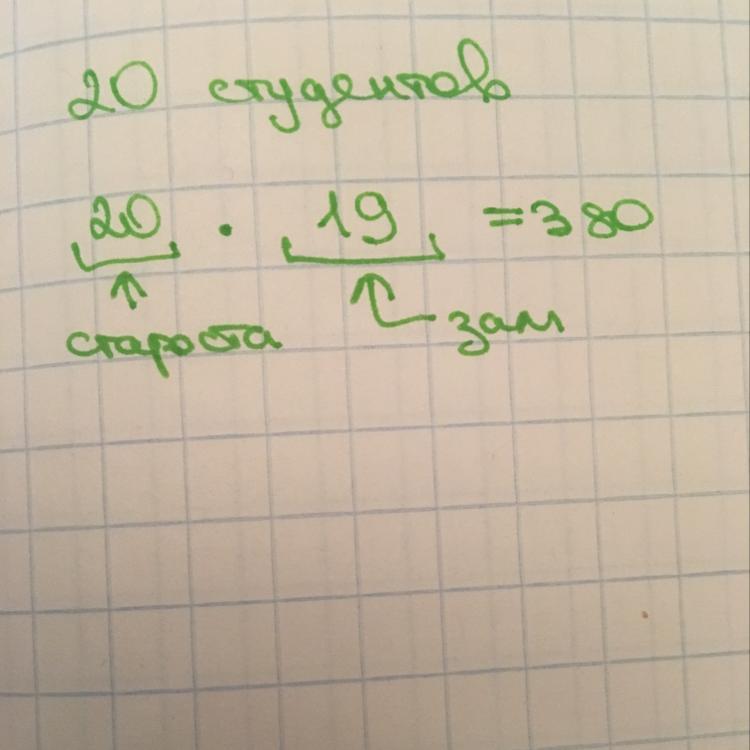 20 студентов
20 · 19 = 380
староста зам